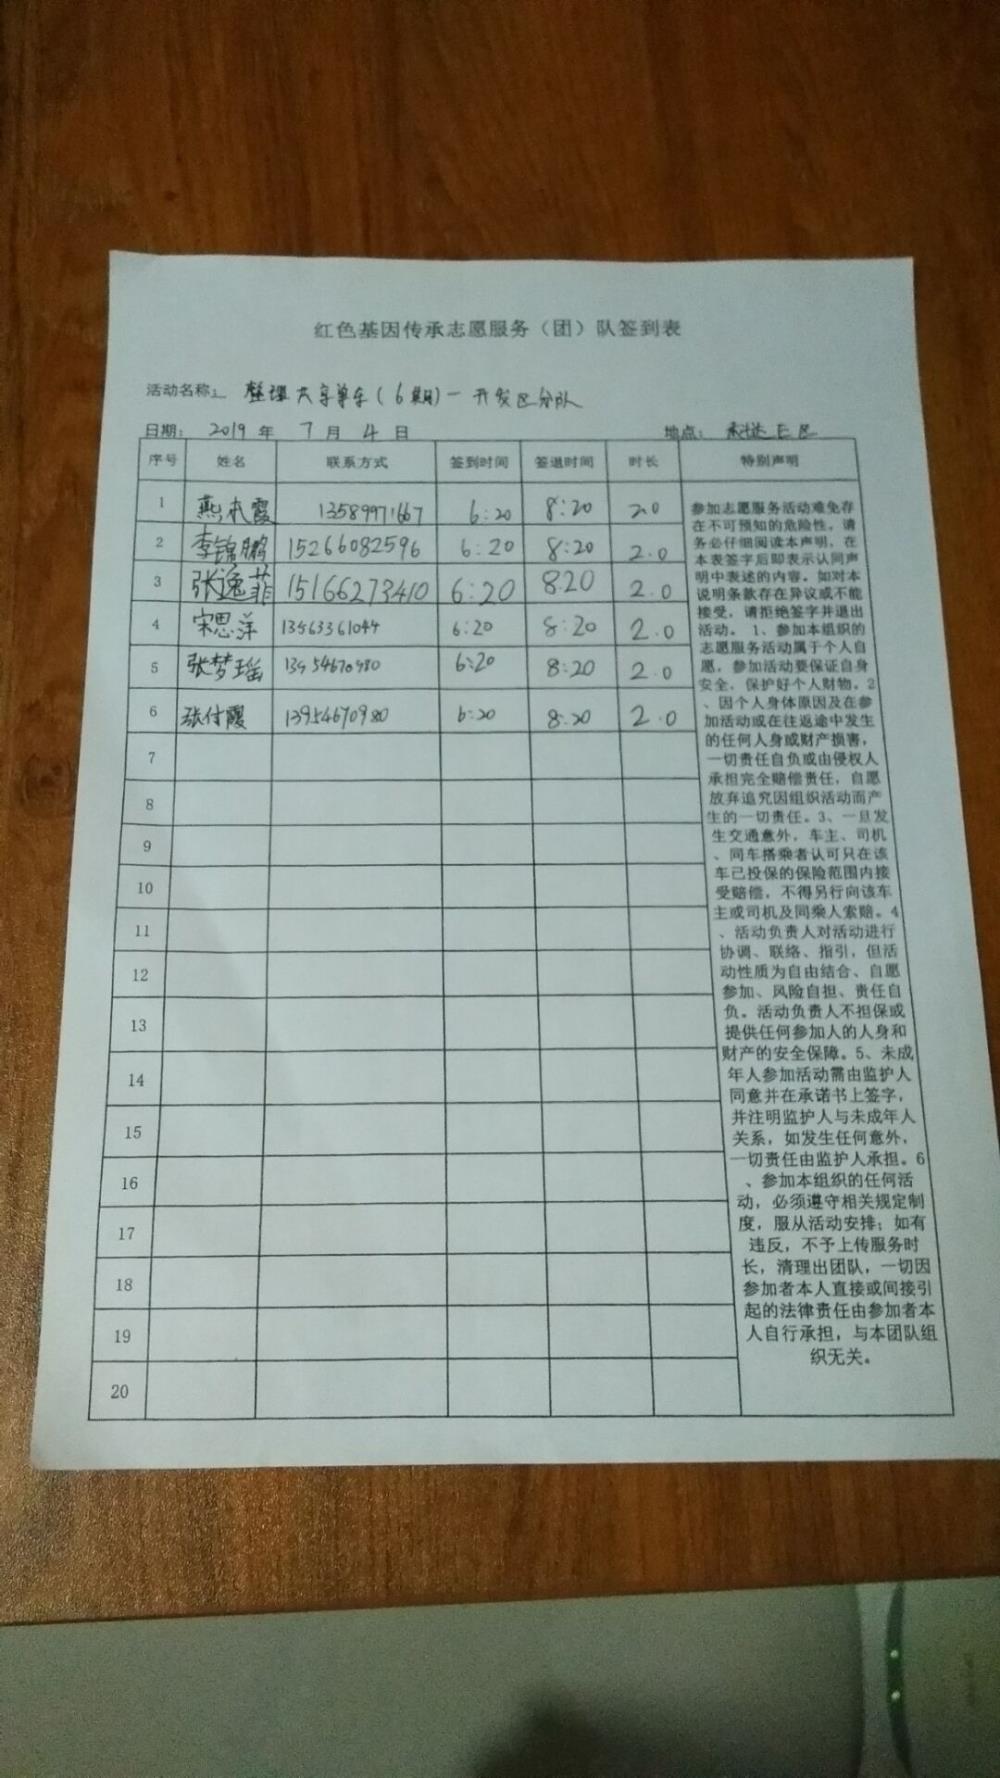 红色基因传承志愿服务（团）队签到表
活动名称： 整理共享单车(6期)一开发区分队
日期： 2019 年 7 月 4 日 地点： E区
序号 姓名 联系方式 签到时间 签退时间 时长 特别声明
1 燕 霞 13589971667 6:20 8:20 2.0
2 李锦鹏 15266082596 6:20 8:20 2.0
3 张逸菲 15166273410 6:20 820 2.0
4 宋思萍 13563361044 6:20 8:20 2.0
5 张梦瑶 13954670980 6:20 8:20 2.0
6 张付霞 13954670980 6:20 8:20 2.0
7
8
9
10
11
12
13
14
15
16
17
18
19
20
参加志愿服务活动难免存
在不可预知的危险性，请
务必仔细阅读本声明，在
本表签字后即表示认同声
明中表述的内容。如对本
说明条款存在异议或不能
接受，请拒绝签字并退出
活动。 1、参加本组织的
志愿服务活动属于个人自
愿，参加活动要保证自身
安全，保护好个人财物。2
、因个人身体原因及在参
加活动或在往返途中发生
的任何人身或财产损害，
一切责任自负或由侵权人
承担完全赔偿责任，自愿
放弃追究因组织活动而产
生的一切责任。3、一旦发
生交通意外，车主、司机
、同车搭乘者认可只在该
车已投保的保险范围内接
受赔偿，不得另行向该车
主或司机及同乘人索赔。4
、活动负责人对活动进行
协调、联络、指引，但活
动性质为自由结合、自愿
参加、风险自担、责任自
负。活动负责人不担保或
提供任何参加人的人身和
财产的安全保障。5、未成
年人参加活动需由监护人
同意并在承诺书上签字，
并注明监护人与未成年人
关系，如发生任何意外，
一切责任由监护人承担。6
、参加本组织的任何活
动，必须遵守相关规定制
度，服从活动安排；如有
违反，不予上传服务时
长，清理出团队，一切因
参加者本人直接或间接引
起的法律责任由参加者本
人自行承担，与本团队组
织无关。